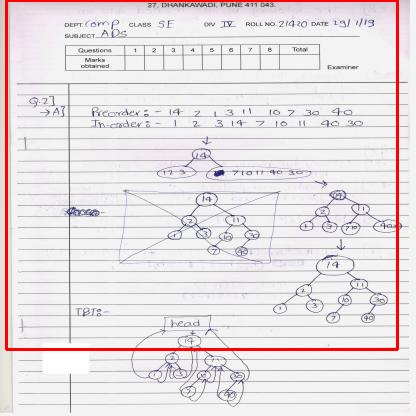 27, DHANKAWADI, PUNE 411 043.
DEPT. Comp CLASS SE DIV IV ROLL NO. 21420 DATE 29/1/19
SUBJECT ADS
Questions 1 2 3 4 5 6 7 8 Total
Marks obtained
Examiner
Q.2]
→A] Preorder:- 14 2 1 3 11 10 7 30 40
In-order:- 1 2 3 14 7 10 11 40 30
14
1 2 3 7 10 11 40 30
14
2 11
1 3 10 30
7 40
14
2 11
1 3 7 10
14
2 11
1 3 10 30
7 40
TBT:-
head
14
2
1 3
7 40